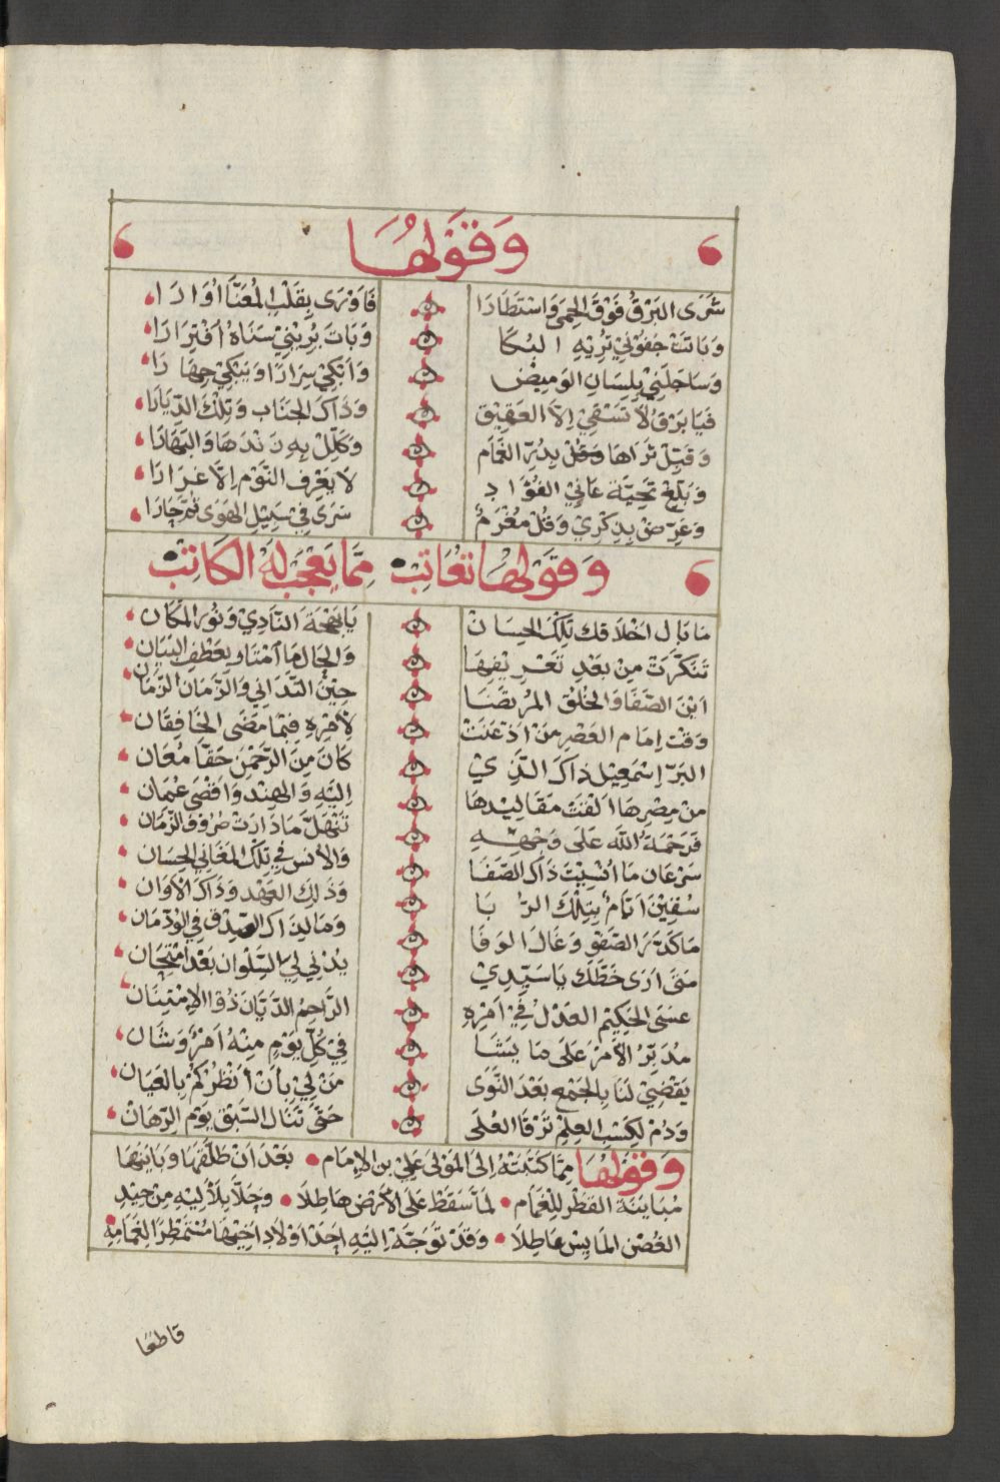 وَقَوْلُهَا
شَرَى البَرْقُ فَوْقَ الحِمَى وَاسْتَطَارَا فَاَوْرَى بِقَلْبِ المُعَنَّا اُوَارَا
وَبَاتَتْ جفوني تُرِيْهِ البُكَا وَبَاتَ يُرِيْنِيْ سَنَاهُ اُفْتِرَارَا
وَسَاجَلَنِيْ بِلِسَانِ الوَمِيْضِ وَاَبْكِيْ سِرَارًا وَيَبْكِيْ جِهَارَا
فَيَا بَرْقُ لَا تَسْقِيْ اِلَّا العَقِيْقَ وَذَاكَ الجَنَابَ وَتِلْكَ الدِّيَارَا
وَقَبِّلْ ثَرَاهَا بِدُرِّ الغَمَام وَكَلِّلْ بِهِ رَنْدَهَا وَالبَهَارَا
وَبَلِّغْ تَحِيَّةَ عَانِيْ الفُؤَادِ لَا يَعْرِفُ النَّوْمَ اِلَّا غِرَارَا
وَعَرِّضْ بِذِكْرِيْ وَقُلْ مُغْرَمٌ سَرَى فِيْ سَبِيْلِ الهَوَى ثُمَّ جَارَا
وَقَوْلُهَا تُعَاتِبُ مِمَّا يَعْجَبُ لَهُ الكَاتِبْ
مَا بَال اخْلَاقك تِلْكَ الحِسَانْ يَا بَهْجَةَ النَّادِيْ وَنُوْرَ المَكَان
تَنَكَّرَتْ مِنْ بَعْدِ تَعْرِيْفِهَا وَالحَال مَا اَمْتَاز بِعَطْفِ البَيَان
اَيْنَ الصَّفَا وَالخُلْقُ المُرْتَضَا حِيْنَ التَّدَانِيْ وَالزَّمَان الزَّمَان
وَقْت اِمَام العَصْرِ مَنْ اَذْعَنَتْ لِاَمْرِهِ فِيْمَا مَضَى الخَافِقَان
البَرّ اِسْمٰعِيْل ذَاكَ الَّذِيْ كَانَ مِنَ الرَّحْمٰنِ حَقًّا مُعَان
مَنْ مِصْرهَا اَلْقَتْ مَقَالِيْدهَا اِلَيْهِ وَالهِنْد وَاَقْصَى عُمَان
فَرَحْمَةُ اللّٰه عَلَى وَجْهِهِ تَنْهَلّ مَا دَارَتْ صُرُوْف الزَّمَان
سَرْعَان مَا اُنْسِيْتَ ذَاكَ الصَّفَا وَالأُنْس فِيْ تِلْكَ المَغَانِي الحِسَان
سُقِيْنَ اَيَّامٌ بِتِلْكَ الرُّبَا وَذَلِكَ العَهْد وَذَاكَ الاَوَان
مَا كَدَّرَ الصَّفْو وَغَالَ الوَفَا وَمَا لِذَاكَ الصِّدْق فِي الوُدّ مَان
مَتَى اَرَى خَطَّك يَا سَيِّدِيْ يُدْنِي لِي السّلْوَان بَعْدَ امْتِحَان
عَسَى الحَكِيْم العَدْلُ فِيْ اَمْرِهِ الرَّاحِمُ الدَّيَّان ذُو الاِمْتِنَان
مُدَبِّرُ الأَمْرِ عَلَى مَا يَشَا فِيْ كُلِّ يَوْمٍ مِنْهُ اَمْرٌ وَشَان
يَقْضِيْ لَنَا بِالجَمْعِ بَعْدَ النَّوَى مَنْ لِيْ بِاَنْ اَنْظُرُكُمْ بِالعَيَان
وَدُمْ لِكَسْبِ العِلْمِ تَرْقَا العُلَى حَتَّى تَنَالَ السَّبْقَ يَوْمَ الرِّهَان
وَقَوْلُهَا مِمَّا كَتَبَتْهُ اِلَى المَوْلَى عَلِيّ بن الاِمَام بَعْدَ اَنْ طَلَّقَهَا وَبَايَنَهَا
مُبَايَنَةَ القَطْرِ لِلْغَمَام لَمَّا سَقَطَ عَلَى الاَرْضِ هَاطِلَا وَجَلَّا بِلَاَلِيْهِ مِنْ جِيْدِ
الغُصْنِ المَايِسِ عَاطِلَا وَقَدْ تَوَجَّهَ اِلَيْهِ اَحَدُ اَوْلَادِ اَخِيْهَا مُسْتَمْطِرَ الغَمَامِهِ
قَاطِعًا